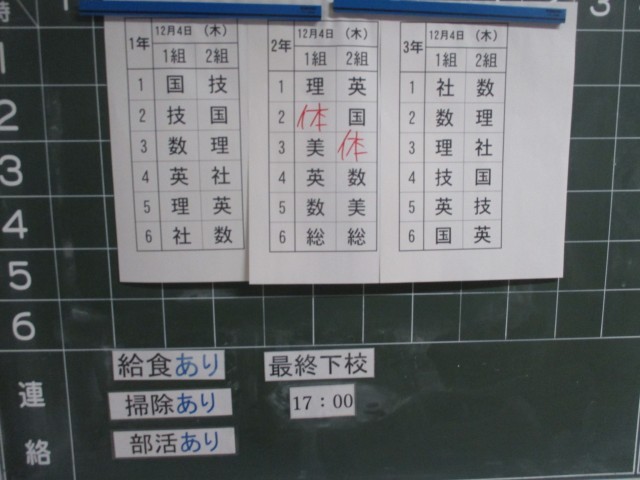 時 3
1
2
3
4
5
6
1年 12月4日 (木)
1組 2組
1 国 技
2 技 国
3 数 理
4 英 社
5 理 英
6 社 数
2年 12月4日 (木)
1組 2組
1 理 英
2 体 国
3 美 体
4 英 数
5 数 美
6 総 総
3年 12月4日 (木)
1組 2組
1 社 数
2 数 理
3 理 社
4 技 国
5 英 技
6 国 英
連絡
給食あり
掃除あり
部活あり
最終下校
17:00